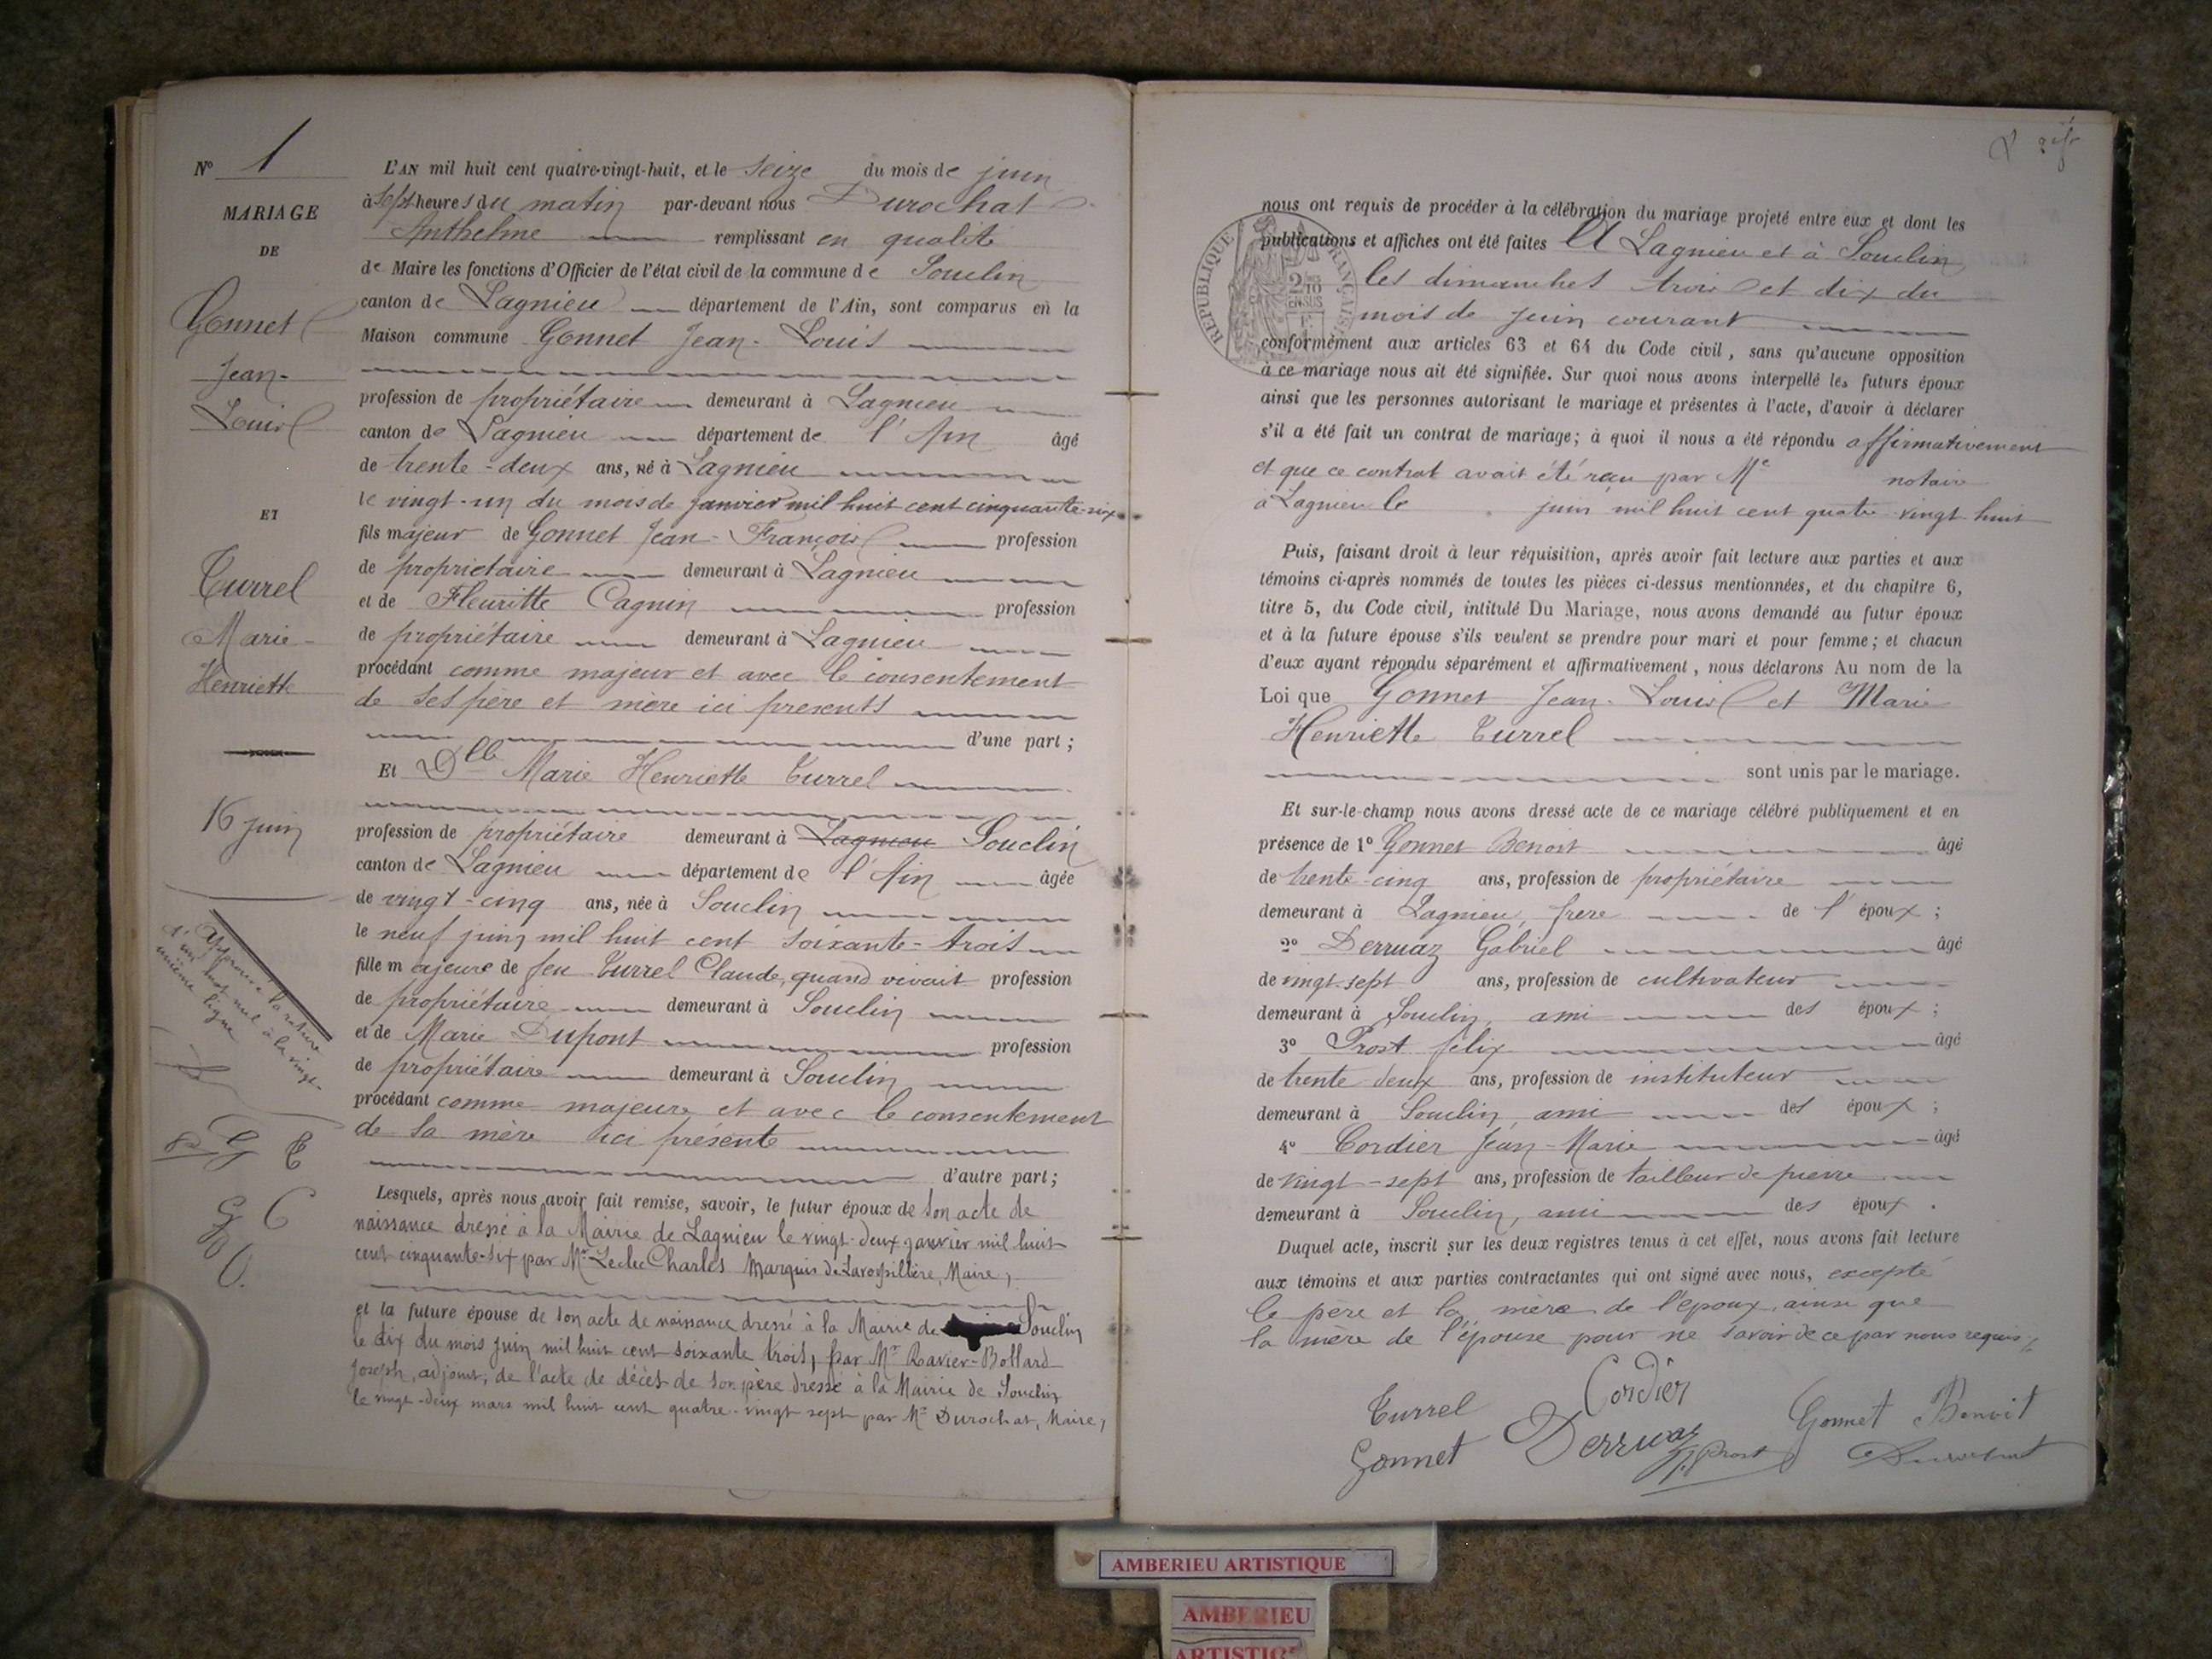 N° 1
MARIAGE
DE
Gonnet
Jean-
Louis
ET
Turrel
Marie-
Henriette
16 juin
Approuvé la rature
d'un mot nul à la vingt-
unième ligne
G T
G C
O.
L'AN mil huit cent quatre-vingt-huit, et le seize du mois de juin
à sept heures du matin par-devant nous Durochat
Anthelme remplissant en qualité
de Maire les fonctions d'Officier de l'état civil de la commune de Souclin
canton de Lagnieu département de l'Ain, sont comparus en la
Maison commune Gonnet Jean-Louis
profession de propriétaire demeurant à Lagnieu
canton de Lagnieu département de l'Ain âgé
de trente-deux ans, né à Lagnieu
le vingt-un du mois de janvier mil huit cent cinquante-six
fils majeur de Gonnet Jean-François profession
de propriétaire demeurant à Lagnieu
et de Fleuritte Cagnin profession
de propriétaire demeurant à Lagnieu
procédant comme majeur et avec le consentement
de ses père et mère ici présents
d'une part ;
Et Dlle Marie Henriette Turrel
profession de propriétaire demeurant à Lagnieu Souclin
canton de Lagnieu département de l'Ain âgée
de vingt-cinq ans, née à Souclin
le neuf juin mil huit cent soixante-trois
fille majeure de feu Turrel Claude, quand vivait profession
de propriétaire demeurant à Souclin
et de Marie Dupont profession
de propriétaire demeurant à Souclin
procédant comme majeure et avec le consentement
de sa mère ici présente
d'autre part ;
Lesquels, après nous avoir fait remise, savoir, le futur époux de son acte de
naissance dressé à la Mairie de Lagnieu le vingt-deux janvier mil huit
cent cinquante-six par Mr Charles Marquis de Maire,
et la future épouse de son acte de naissance dressé à la Mairie de Souclin
le dix du mois juin mil huit cent soixante trois, par Mr Ravier-Bollard
Joseph, adjoint, de l'acte de décès de son père dressé à la Mairie de Souclin
le vingt-deux mars mil huit cent quatre-vingt sept par Mr Durochat, Maire,
nous ont requis de procéder à la célébration du mariage projeté entre eux et dont les
publications et affiches ont été faites à Lagnieu et à Souclin
les dimanches trois et dix du
mois de juin courant
RÉPUBLIQUE FRANÇAISE
conformément aux articles 63 et 64 du Code civil, sans qu'aucune opposition
à ce mariage nous ait été signifiée. Sur quoi nous avons interpellé les futurs époux
ainsi que les personnes autorisant le mariage et présentes à l'acte, d'avoir à déclarer
s'il a été fait un contrat de mariage ; à quoi il nous a été répondu affirmativement
et que ce contrat avait été reçu par Me notaire
à Lagnieu le juin mil huit cent quatre-vingt huit
Puis, faisant droit à leur réquisition, après avoir fait lecture aux parties et aux
témoins ci-après nommés de toutes les pièces ci-dessus mentionnées, et du chapitre 6,
titre 5, du Code civil, intitulé Du Mariage, nous avons demandé au futur époux
et à la future épouse s'ils veulent se prendre pour mari et pour femme ; et chacun
d'eux ayant répondu séparément et affirmativement, nous déclarons Au nom de la
Loi que Gonnet Jean-Louis et Marie
Henriette Turrel
sont unis par le mariage.
Et sur-le-champ nous avons dressé acte de ce mariage célébré publiquement et en
présence de 1° Gonnet Benoit âgé
de trente-cinq ans, profession de propriétaire
demeurant à Lagnieu, frère de l'époux ;
2° Derruaz Gabriel âgé
de vingt-sept ans, profession de cultivateur
demeurant à Souclin, ami des époux ;
3° Prost félix âgé
de trente deux ans, profession de instituteur
demeurant à Souclin, ami des époux ;
4° Cordier Jean-Marie âgé
de vingt-sept ans, profession de tailleur de pierre
demeurant à Souclin, ami des époux.
Duquel acte, inscrit sur les deux registres tenus à cet effet, nous avons fait lecture
aux témoins et aux parties contractantes qui ont signé avec nous, excepté
le père et la mère de l'époux, ainsi que
la mère de l'épouse pour ne savoir de ce par nous requis
Turrel Cordier Gonnet Benoit
Gonnet Derruaz Prost Durochat
AMBERIEU ARTISTIQUE
AMBERIEU
ARTISTIQ